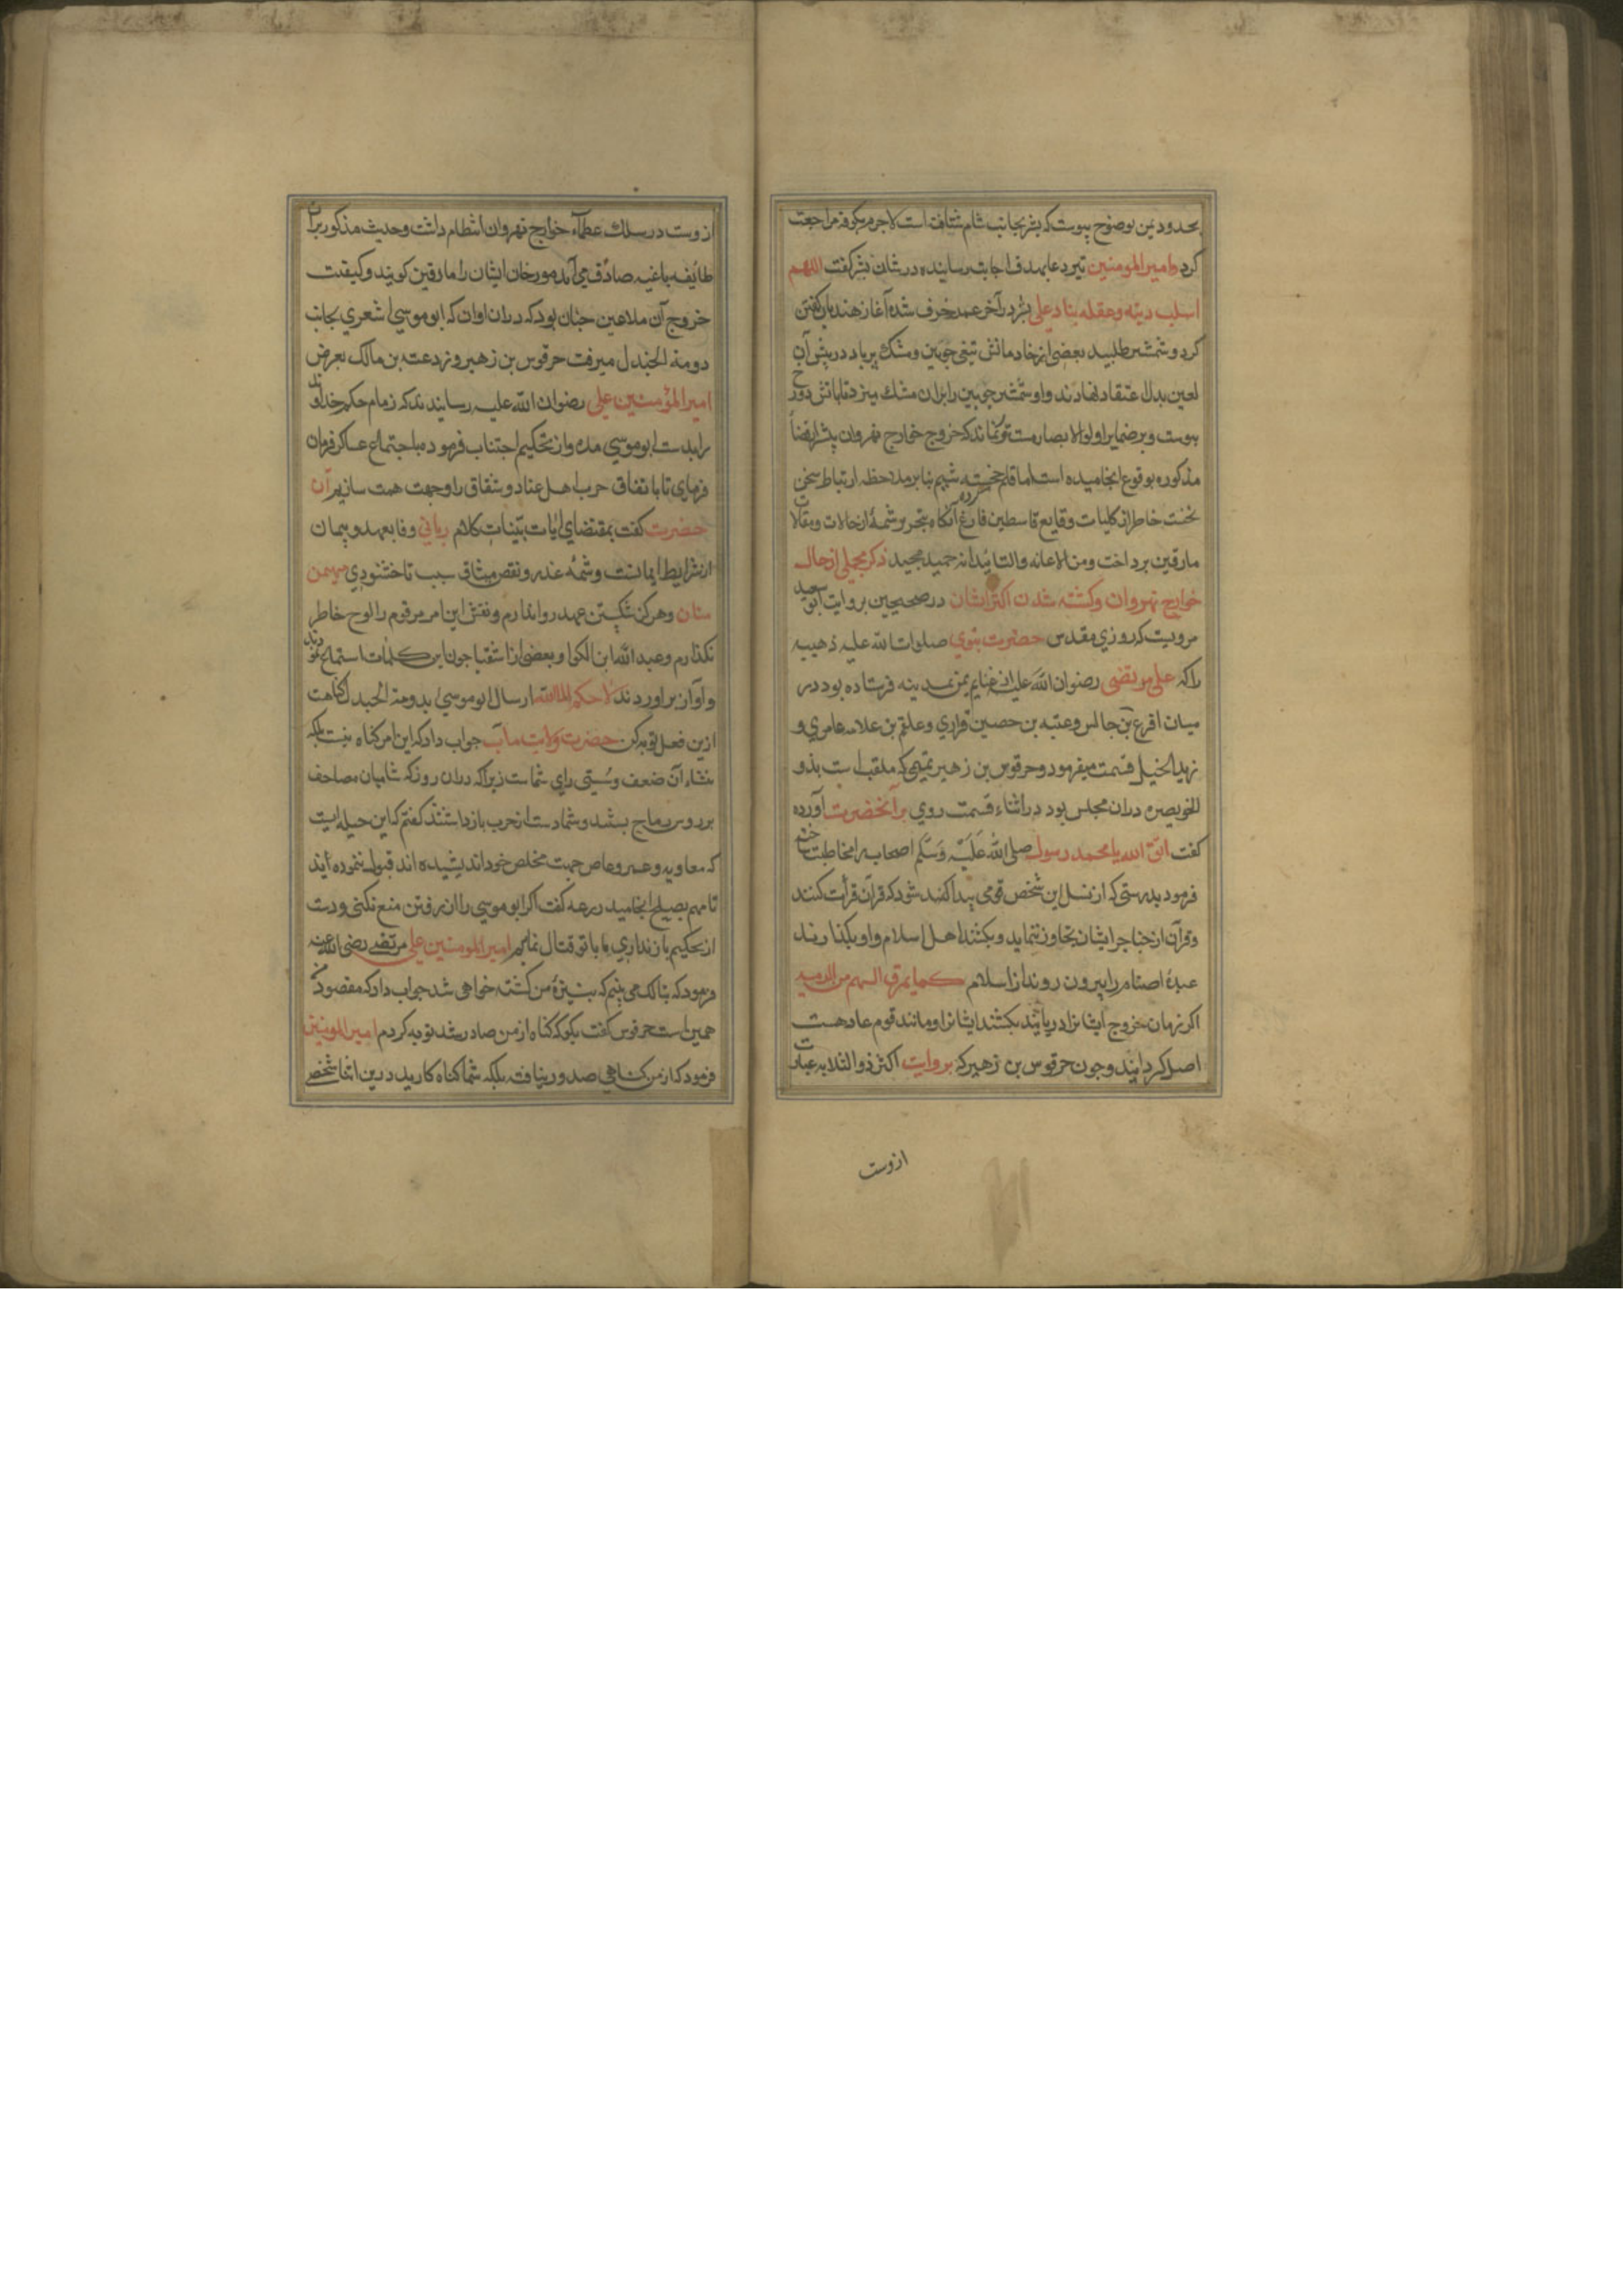 بحدود یمن بوضوح پیوست که بشر بجانب شام شتافته است لاجرم بکوفه مراجعت
کرد و امیرالمومنین تیر دعا بهدف اجابت رسانیده در شان بشر گفت اللهم
اسلب دینه وعقله بنا دعلی بشر در آخر عمر خرف شده آغاز هذیان گفتن
کرد و شمشیر طلبید بعضی از خادمانش تیغی چوبین و مشک پر باد در پیش آن
لعین بدل عتقاد نهادند و او شمشیر چوبین را بران مشک میزد تا بدوزخ
پیوست و بر ضمایر اولوالابصار مستور نماند که خروج خوارج نهروان پیشتر از قضایا
مذکوره بوقوع انجامیده است اما قلم خجسته شیم بنا بر ملاحظه ارتباط سخن
نخست خاطر از کلیات وقایع قاسطین فارغ کرده آنگاه بتحریر شمهٔ از حالات و مقالات
مارقین پرداخت ومنه الاعانه والتائید انه حمید مجید ذکر مجملی از حال
خوارج نهروان و کشته شدن اکثر ایشان در صحیحین بروایت ابو سعید
مرویست که روزی مقدس حضرت نبوی صلوات الله علیه ذهیبه
را که علی مرتضی رضوان الله علیه از غنایم یمن بمدینه فرستاده بود در
میان اقرع بن حابس و عتبه بن حصین فزاری و علقم بن علاثه عامری و
زید الخیل قسمت میفرمود و حرقوس بن زهیر تمیمی که ملقب است بذو
الخویصره دران مجلس بود در اثناء قسمت روی بر آنحضرت آورده
گفت اتق الله یا محمد رسول صلی الله علیه وسلم اصحاب را مخاطب ساخته
فرمود بدرستی که از نسل این شخص قومی پیدا کند شود که قرآن قرأت کنند
و قرآن از حناجر ایشان تجاوز ننماید و بکشند اهل اسلام و او بگذارند
عبدهٔ اصنام را بیرون روند از اسلام کما یمرق السهم من الرمیه
اگر زمان خروج ایشانرا دریابند بکشند ایشانرا و مانند قوم عاد هست
اصل گردانند و چون حرقوس بن زهیر که بروایت اکثر ذوالثدیه عبارت
ازوست
ازوست در سلک عظماء خوارج نهروان انتظام داشت و حدیث مذکور بران
طائفه باغیه صادق می آید مورخان ایشان را مارقین گویند و کیفیت
خروج آن ملاعین چنان بود که دران اوان که ابو موسی اشعری بجانب
دومة الجندل میرفت حرقوس بن زهیر و زرعته بن مالک بعرض
امیرالمؤمنین علی رضوان الله علیه رسانیدند که زمام حکم خداوند
را بدست ابو موسی مده و از تحکیم اجتناب فرموده باجتماع عساکر فرمان
فرمای تا باتفاق حرب اهل عناد و شقاق را وجهت همت سازیم آن
حضرت گفت بمقتضای ایات بینات کلام ربانی وفا بعهد و پیمان
از شرایط ایمانست و شمهٔ غدر و نقض میثاق سبب ناخشنودی مهیمن
منان و هرگز شکستن عهد روا ندارم و نقش این امر مرقوم را لوح خاطر
نگذارم و عبدالله ابن الکوا و بعضی از اشقیا چون این کلمات استماع نمودند
و آواز براوردند که لا حکم الا لله ارسال ابو موسی بدومة الجندل گناهست
ازین فعل توبه کن حضرت ولایت مآب جواب داد که این امر گناه نیست بلکه
منشاء آن ضعف و سستی رای شماست زیرا که دران روز که شامیان مصاحف
بر روس رماح بستند و شما دست از حرب بازداشتند گفتم که این حیله ایست
که معاویه و عمرو عاص جهت مخلص خود اندیشیده اند قبول ننموده اید
تا مهم بصلح انجامید زرعه گفت اگر ابو موسی را از رفتن منع نکنی و دست
از تحکیم باز نداری ما با تو قتال نمایم امیرالمومنین علی مرتضی رضی الله عنه
فرمود که بنا که می بینم که بتیزهٔ من کشته خواهی شد جواب داد که مقصود من
همین است حرقوس گفت بگو که گناه از من صادر شد توبه کردم امیرالمومنین
فرمود که از من گناهی صدور نیافته بلکه شما گناه کارید درین اثنا شخصی